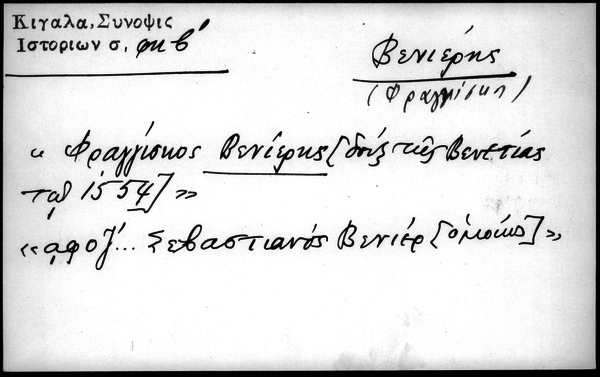 Κιγαλα, Συνοψις
Ιστοριων σ. φκβ'
Βενιέρης
(Φραγγίσκ)
« Φραγγίσκος Βενιέρης [δούξ τῆς Βενετίας
τῷ 1554] »
« αφοζ'... Σεβαστιανός Βενιέρ [ὁμοίως] »